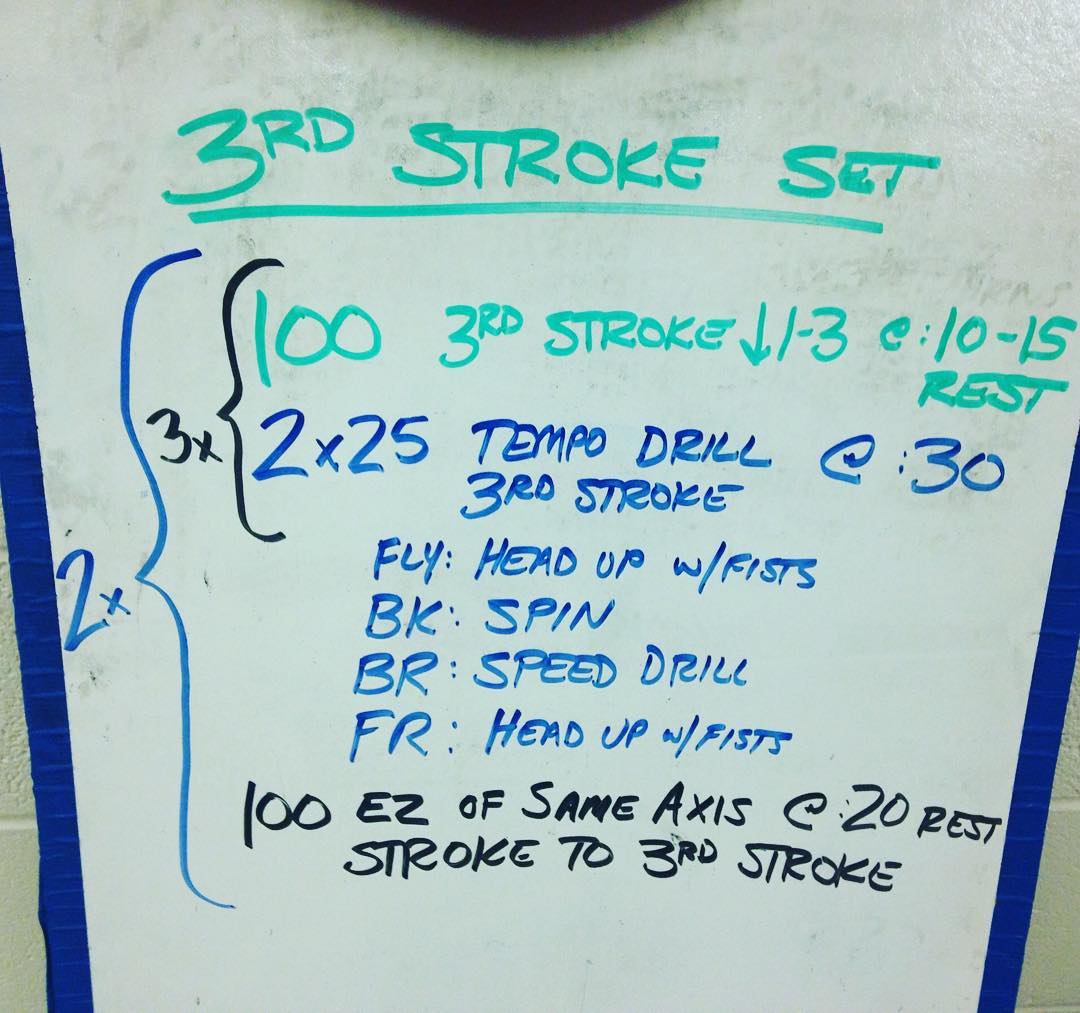 3RD STROKE SET
100 3RD STROKE ↓1-3 @ :10-15
REST
3x
2x25 TEMPO DRILL @ :30
3RD STROKE
2x
FLY: HEAD UP w/FISTS
BK: SPIN
BR: SPEED DRILL
FR: HEAD UP w/FISTS
100 EZ OF SAME AXIS @ :20 REST
STROKE TO 3RD STROKE